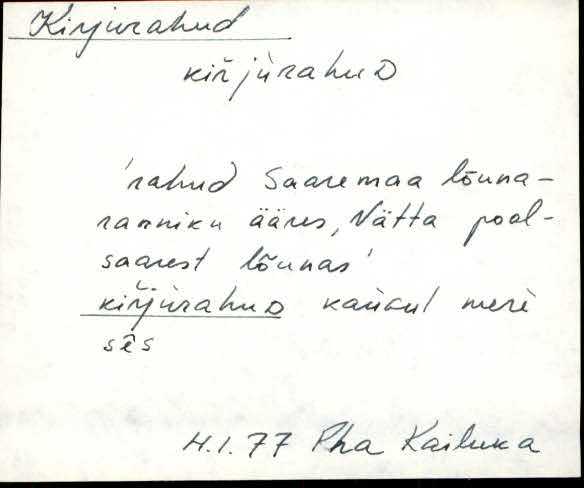 Kirjurahud
kiŕjùrahuD
'rahud Saaremaa lõuna-
ranniku ääres, Vätta pool-
saarest lõunas'
kiŕjùrahuD meri
sês
H.I.77 Pha Kailuka